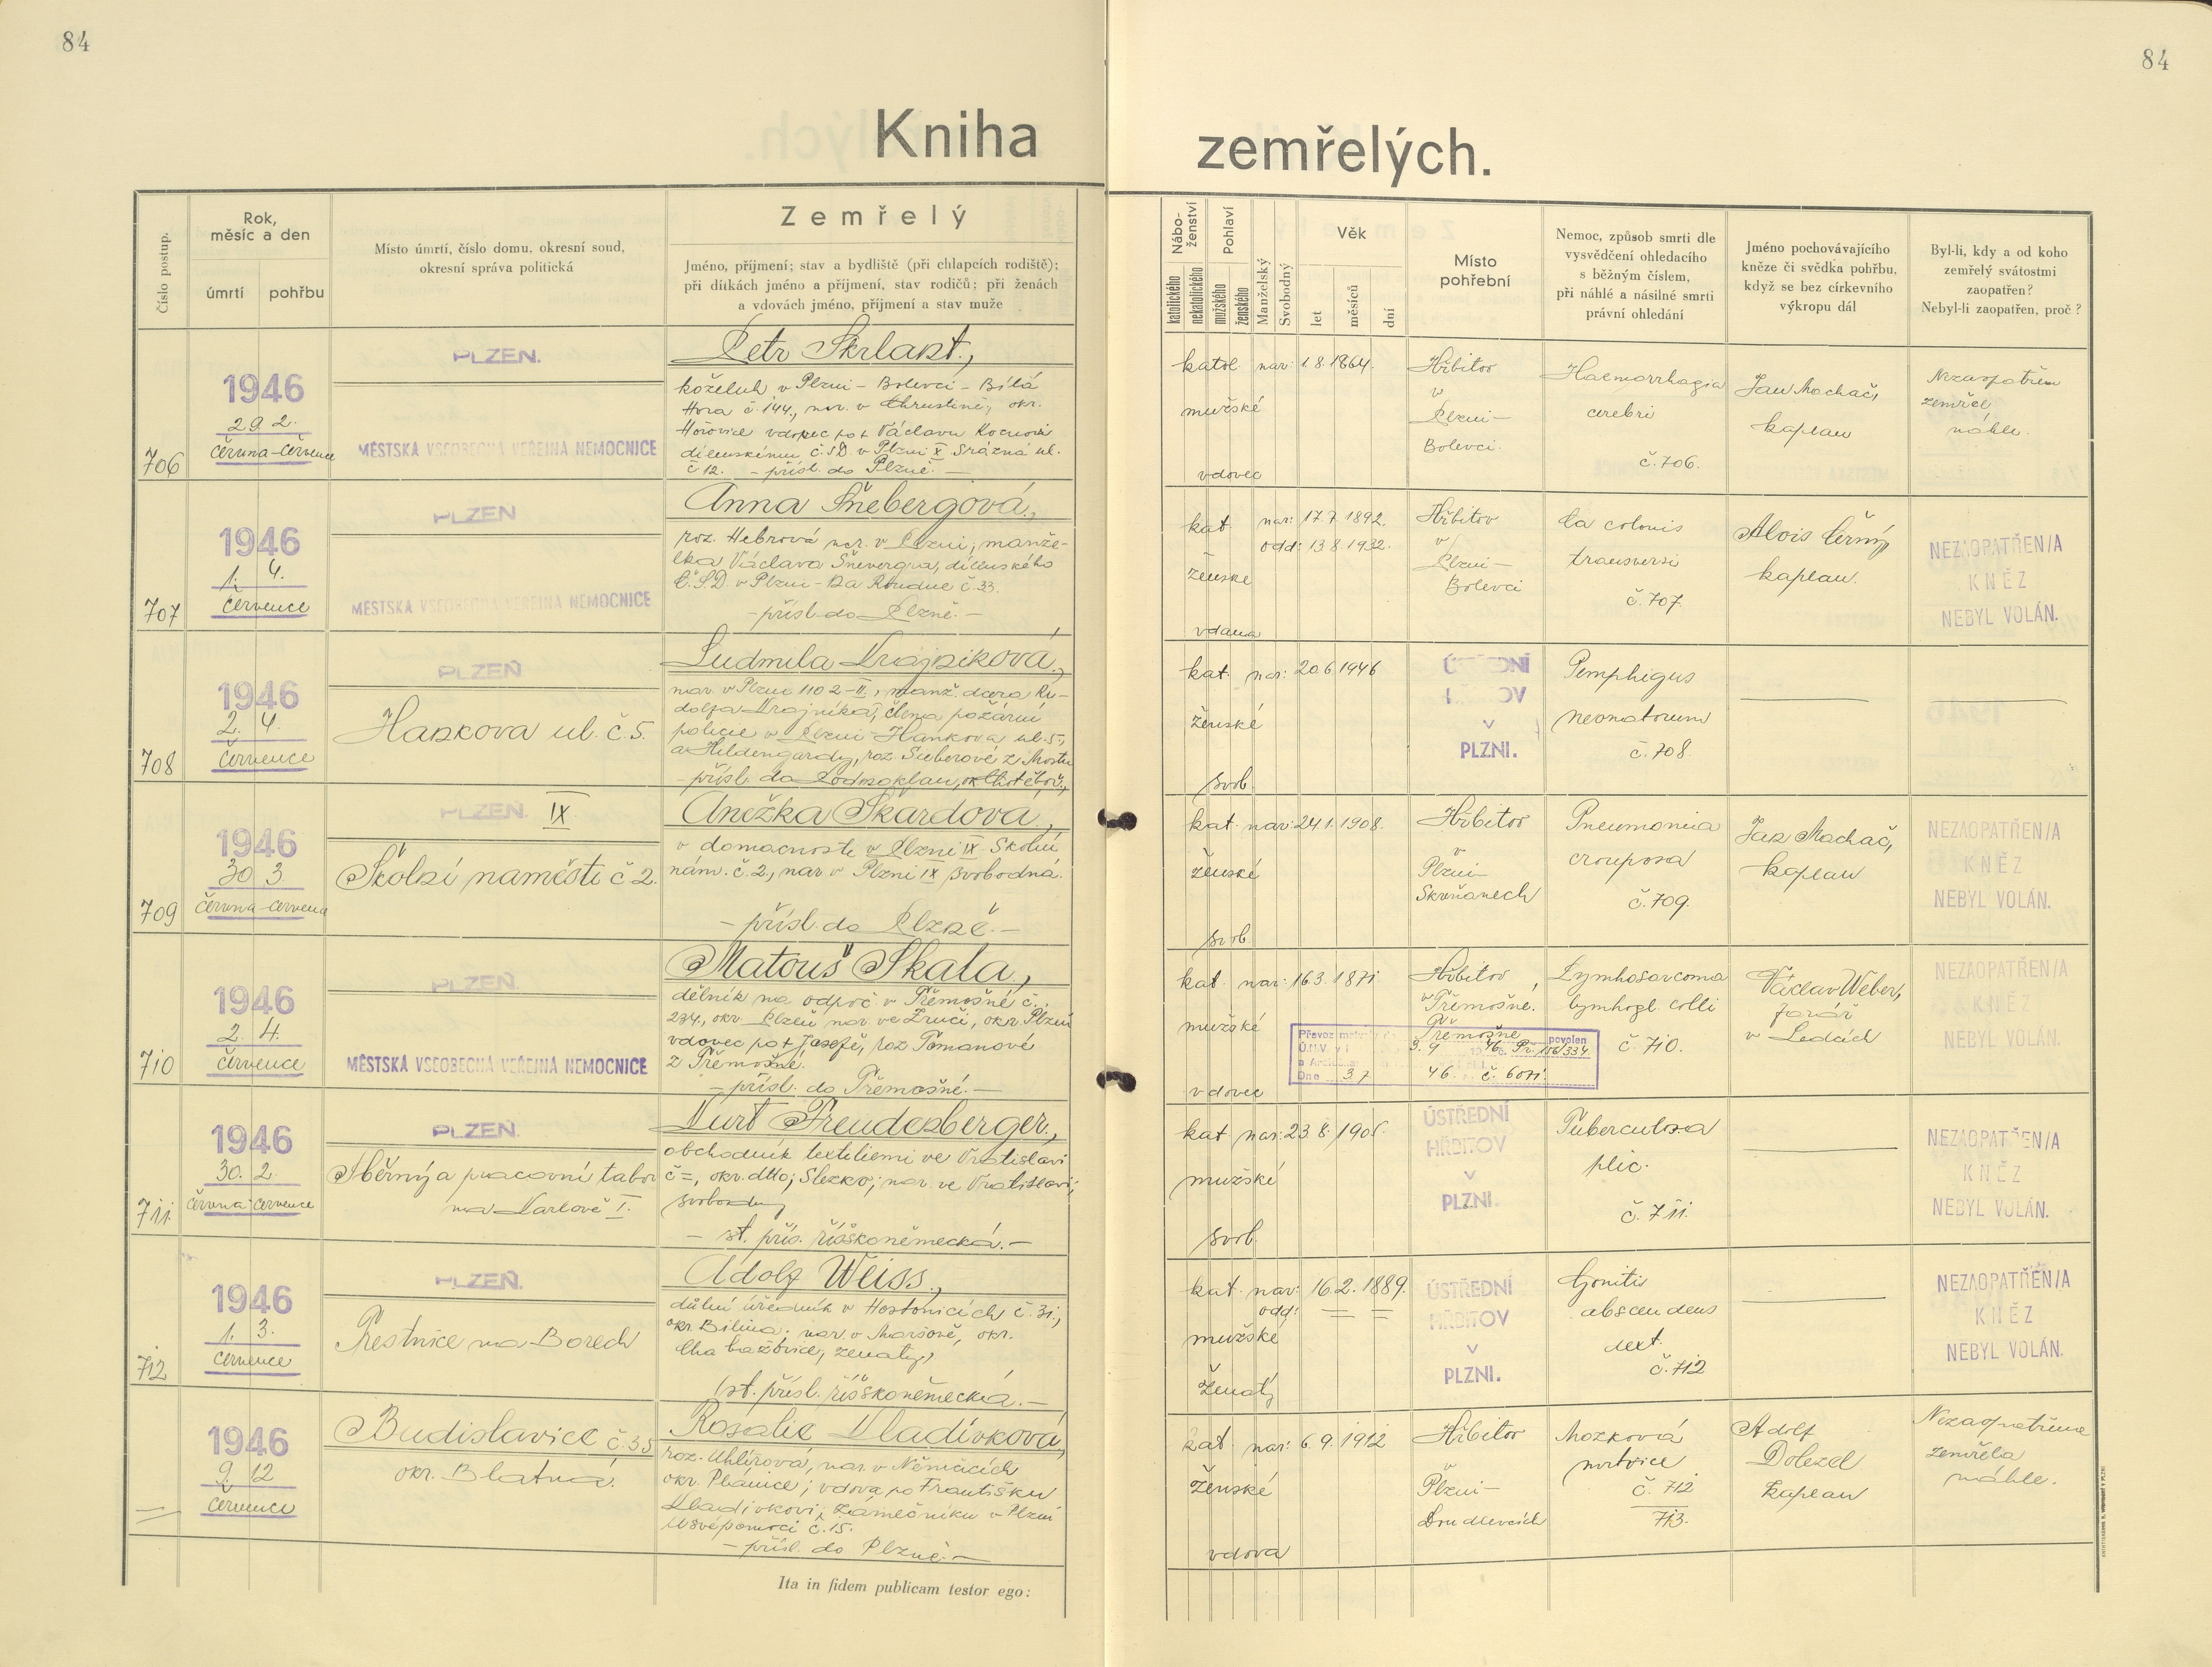 84
84
Kniha zemřelých.
Číslo postup.
Rok,
měsíc a den
úmrtí
pohřbu
Místo úmrtí, číslo domu, okresní soud,
okresní správa politická
Zemřelý
Jméno, příjmení; stav a bydliště (při chlapcích rodiště);
při dítkách jméno a příjmení, stav rodičů; při ženách
a vdovách jméno, příjmení a stav muže
Nábo-
ženství
katolického
nekatolického
Pohlaví
mužského
ženského
Manželský
Svobodný
Věk
let
měsíců
dní
Místo
pohřební
Nemoc, způsob smrti dle
vysvědčení ohledacího
s běžným číslem,
při náhlé a násilné smrti
právní ohledání
Jméno pochovávajícího
kněze či svědka pohřbu,
když se bez církevního
výkropu dál
Byl-li, kdy a od koho
zemřelý svátostmi
zaopatřen?
Nebyl-li zaopatřen, proč?
706
1946
29. 2.
června-července
PLZEŇ.
MĚSTSKÁ VŠEOBECNÁ VEŘEJNÁ NEMOCNICE
Petr Škrlant,
koželuh v Plzni - Bolevci - Bílá
Hora č. 144, nar. v Chrustině, okr.
Hořovice vdovec po †
č 12. - přísl. do Plzně. -
katol.
mužské
vdovec
nar: 1.8.1864.
Hřbitov
v
Plzni-
Bolevci.
Haemorrhagia
cerebri
č. 706.
Jan Machač,
kaplan
Nezaopatřen
zemřel
náhle.
707
1946
1. 4.
července
PLZEŇ
MĚSTSKÁ VŠEOBECNÁ VEŘEJNÁ NEMOCNICE
Anna Šnebergová,
roz. Hebrová nar. v Plzni, manže-
lka Václava Šneberga, dílenského
Č.S.D. v Plzni - Na Roudné č. 33.
- přísl. do Plzně. -
kat.
ženské
vdaná
nar: 17.7.1892.
odd: 13.8.1932.
Hřbitov
v
Plzni-
Bolevci
Ca colonis
transversi
č. 707.
Alois Černý,
kaplan.
NEZAOPATŘEN/A
KNĚZ
NEBYL VOLÁN.
708
1946
2. 4.
července
PLZEŇ
Hankova ul. č. 5.
Ludmila Krajníková,
nar. v Plzni 1102-II, manž. dcera Ru-
dolfa Krajníka, člena požární
policie v Plzni - Hankova ul. 5,
a Hildengardy, roz. Sieberové z Mostu
kat.
ženské
svob
nar: 20.6.1946
ÚSTŘEDNÍ
HŘBITOV
V
PLZNI.
Pemphigus
neonatorum
č. 708.
709
1946
30 3
června-července
PLZEŇ. IX.
Školní náměstí č 2.
Anežka Škardová,
v domácnosti v Plzni IX Školní
nám. č. 2., nar. v Plzni IX svobodná.
- přísl. do Plzně. -
kat.
ženské
svob
nar: 24.1.1908.
Hřbitov
v
Plzni-
Skvrňanech
Pneumonia
crouposa
č. 709.
Jan Machač,
kaplan
NEZAOPATŘEN/A
KNĚZ
NEBYL VOLÁN.
710
1946
2. 4.
července
PLZEŇ.
MĚSTSKÁ VŠEOBECNÁ VEŘEJNÁ NEMOCNICE
Matouš Skala,
dělník na odpoč. v Třemošné č.
234, okr. Plzeň nar. ve Zruči, okr. Plzeň
vdovec po † Josefě, roz. Tomanové
z Třemošné.
- přísl. do Třemošné. -
kat.
mužské
vdovec
nar: 16.3.1871
Hřbitov
v Třemošné.
Převoz povolen
Třemošné
Dne 3.7. 46. č. 6071.
Lymhosarcoma
lymhogl. colli
č. 710.
Václav Weber,
farář
v Ledcích
NEZAOPATŘEN/A
KNĚZ
NEBYL VOLÁN.
711
1946
30. 2.
června července
PLZEŇ.
Sběrný a pracovní tabor
na Karlově I.
Kurt Freudenberger,
obchodník textiliemi ve Vratislavi
č =, okr. dtto; Slezko; nar. ve Vratislavi;
svobodný
- st. přís. říšskoněmecká. -
kat
mužské
svob.
nar: 23.8.1905.
ÚSTŘEDNÍ
HŘBITOV
V
PLZNI.
Tuberculosa
plic.
č. 711.
NEZAOPATŘEN/A
KNĚZ
NEBYL VOLÁN.
712
1946
1. 3.
července
PLZEŇ.
Trestnice na Borech
Adolf Weiss,
důlní úředník v Hostomicích č. 31,
okr. Bílina; nar. v Maršově, okr.
Chabařovice, ženatý,
st. přísl. říšskoněmecká. -
kat.
mužské
ženatý
nar: 16.2.1889.
odd: = =
ÚSTŘEDNÍ
HŘBITOV
V
PLZNI.
Gonitis
abscendens
dext.
č. 712
NEZAOPATŘEN/A
KNĚZ
NEBYL VOLÁN.
1946
9. 12
července
Budislavice č. 35
okr. Blatná.
Rosalie Kladívková,
roz. Uhlířová, nar. v Němčicích
okr. Plánice; vdova po Františku
Kladívkovi, zámečníku v Plzni
U svépomoci č. 15.
- přísl. do Plzně. -
kat.
ženské
vdova
nar: 6.9.1912
Hřbitov
v
Plzni-
Doudlevcích
Mozková
mrtvice
č. 712
713.
Adolf
Doležel
kaplan
Nezaopatřena
zemřela
náhle.
Ita in fidem publicam testor ego: